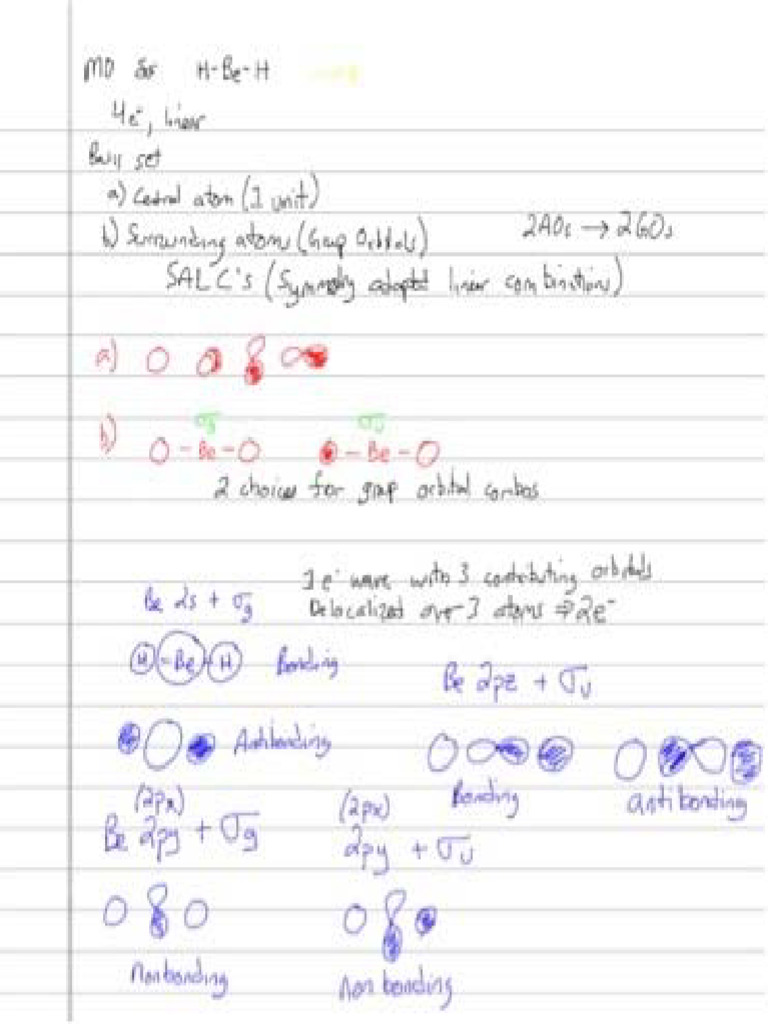 MO for H-Be-H
4e⁻, linear
Basis set
a) Central atom (1 unit)
b) Surrounding atoms (Group Orbitals) 2AOs → 2GOs
SALC's (Symmetry adapted linear combinations)
a)
σg σu
b) -Be- -Be-
2 choices for group orbital combos
1e⁻ wave with 3 contributing orbitals
Be 2s + σg Delocalized over 3 atoms ⇒ 2e⁻
H-Be-H Bonding
Be 2pz + σu
Antibonding
Bonding antibonding
(2px) (2px)
Be 2py + σg 2py + σu
Nonbonding Non bonding